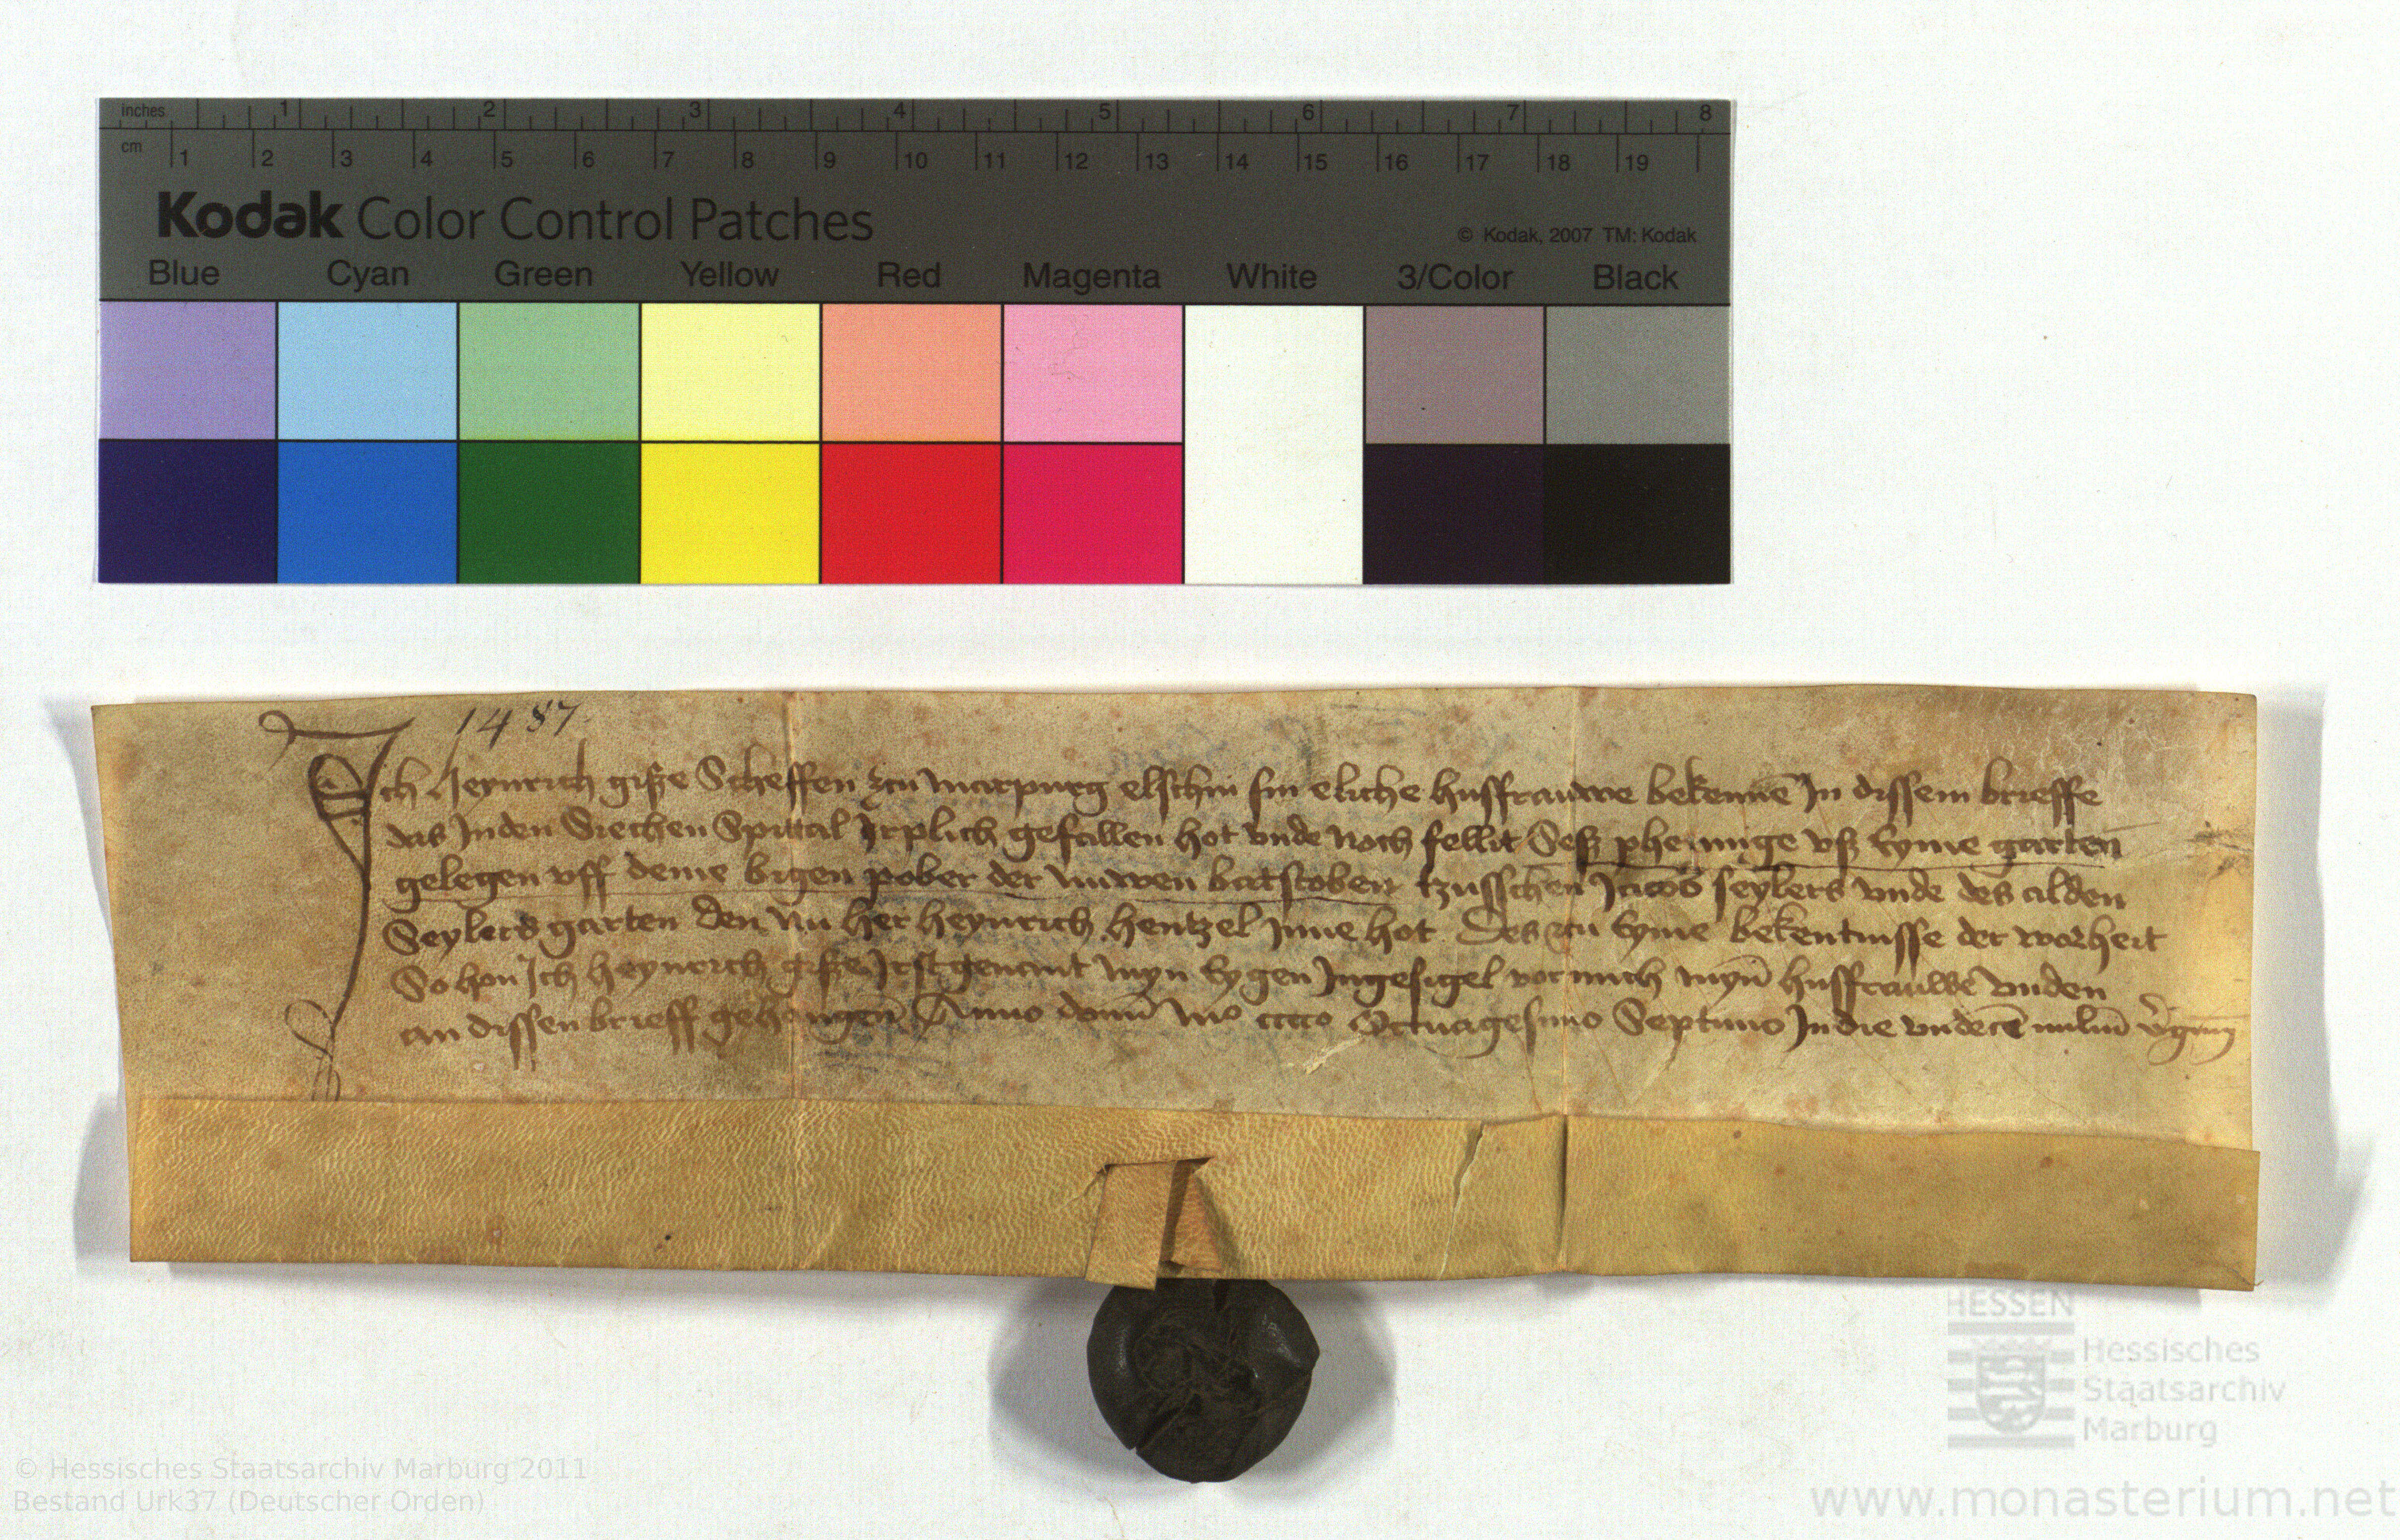 inches 1 2 3 4 5 6 7 8
cm 1 2 3 4 5 6 7 8 9 10 11 12 13 14 15 16 17 18 19
Kodak Color Control Patches
© Kodak, 2007 TM: Kodak
Blue Cyan Green Yellow Red Magenta White 3/Color Black
1487
Ich Heynrich gisze Scheffen zcu Marpurg elschin sin eliche husffrauwe bekennē In dissem brieffe
das In den Siechen Spittal Jerlich gefallen hot vnde noch fellit Sesz phennige vsz Eyme garten
gelegen vff deme bigen pober der nuwen batstoben tzusschen Jacob seylers vnde des alden
Seylers garten den nu her heynrich hentzel Inne hot Des zcu Eyme bekentnisse der warheit
So hon Ich heynrich gisze Irstgenant myn Eygen Ingesigel vor mich myn̄ husffrauwē vnden
an dissen brieff gehangen̄ Anno domī Mo cccco Octuagesimo Septimo In die vndecē miliū v̄ginū
HESSEN
Hessisches
Staatsarchiv
Marburg
© Hessisches Staatsarchiv Marburg 2011
Bestand Urk37 (Deutscher Orden)
www.monasterium.net